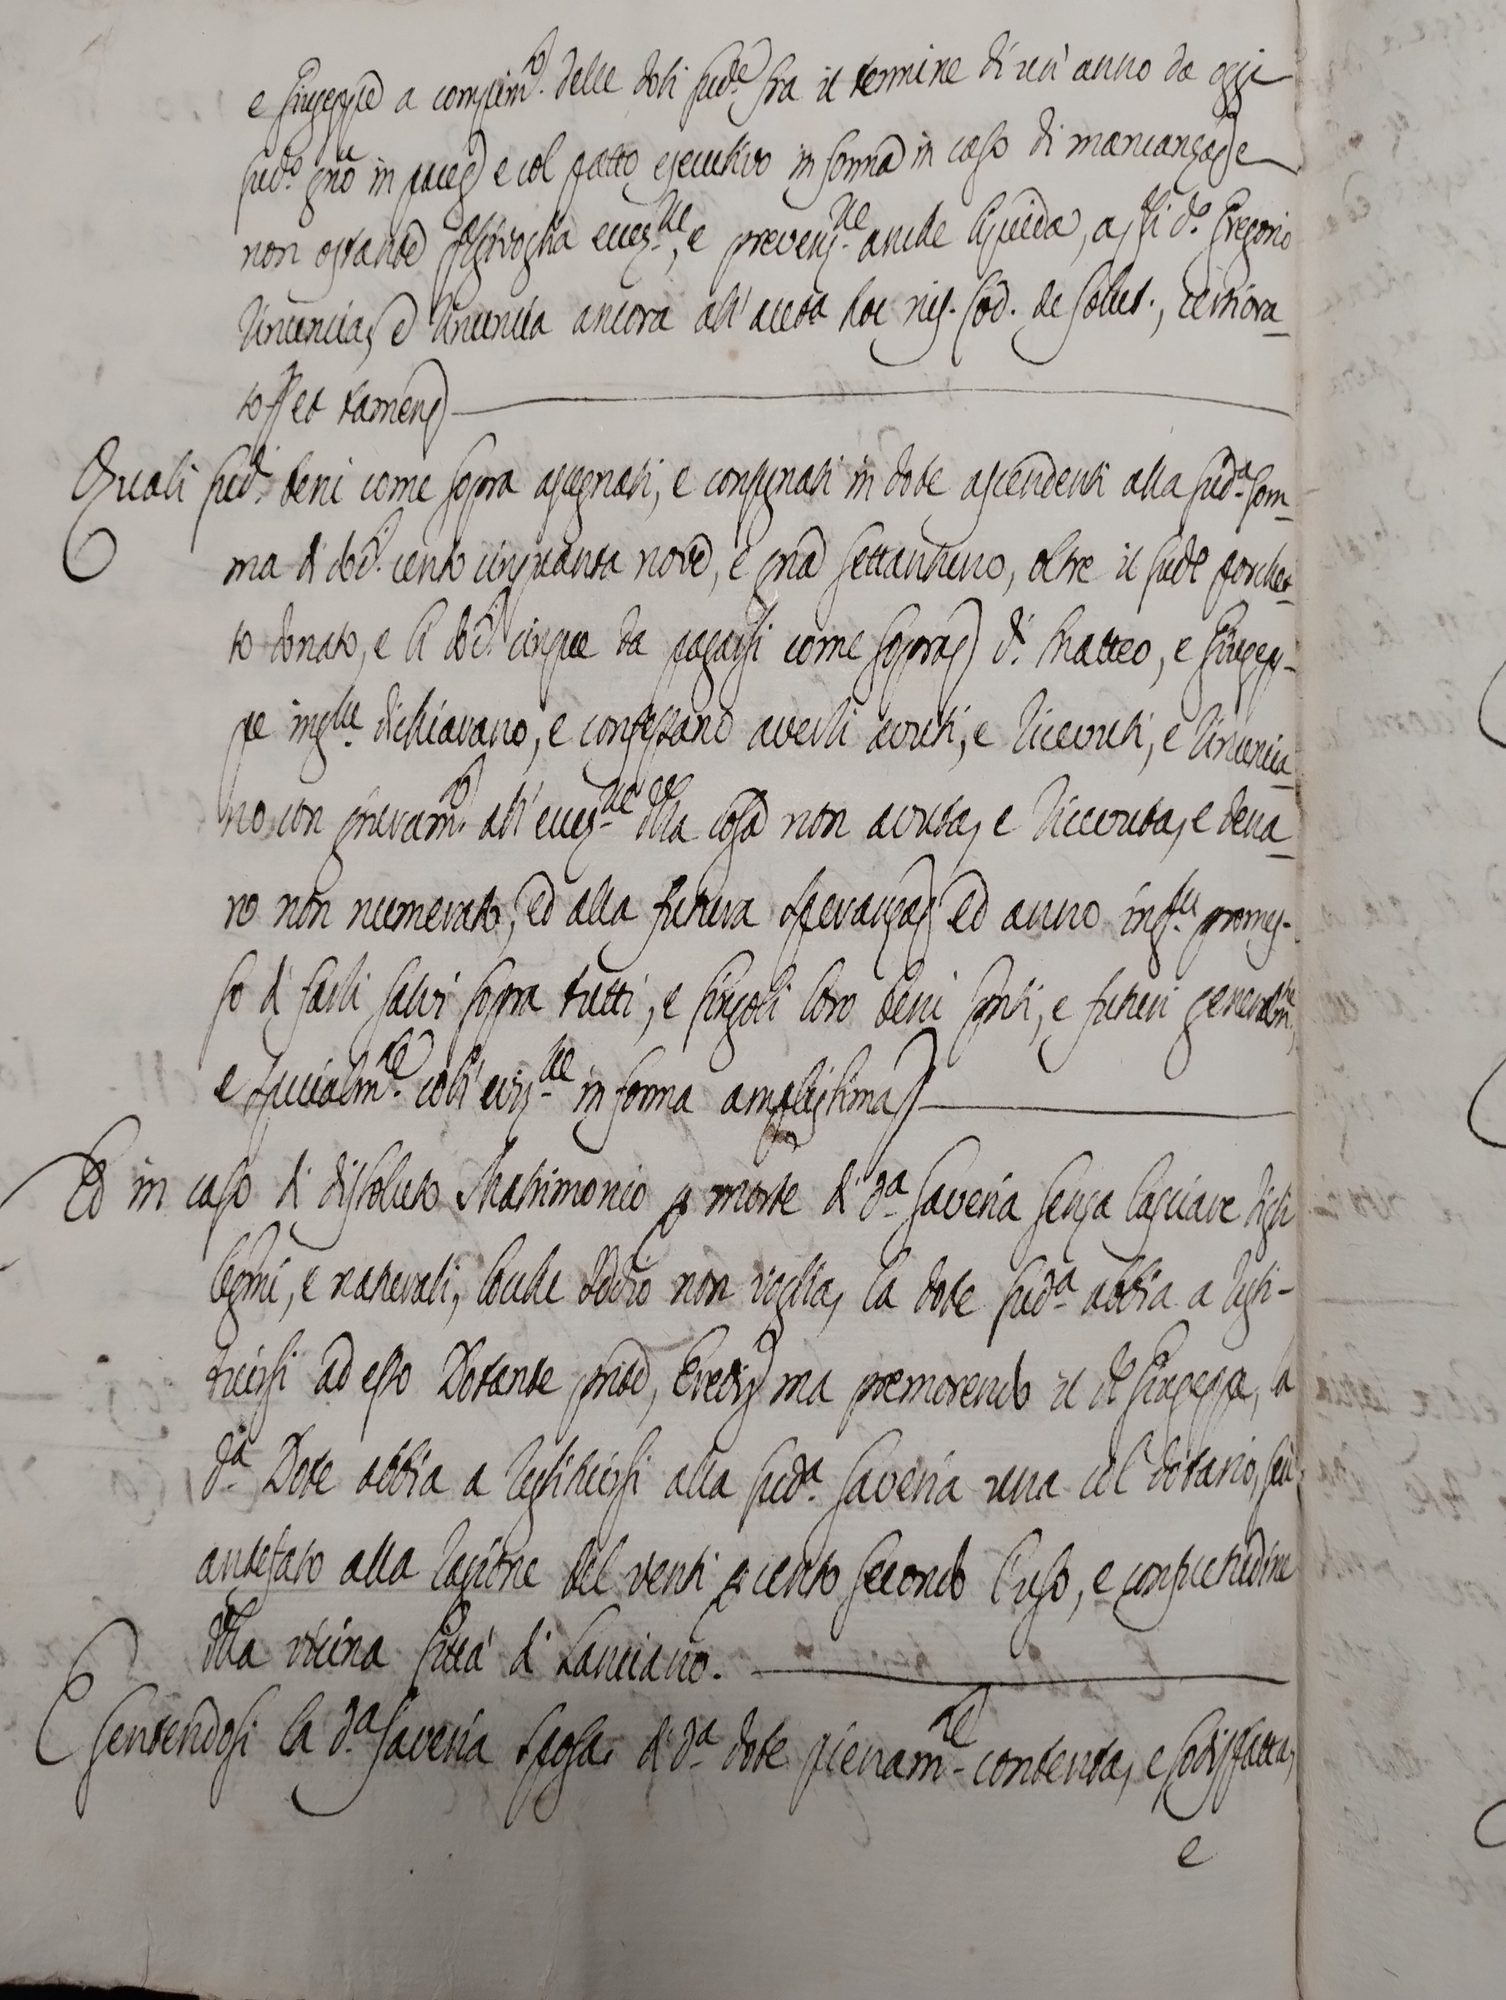 e Giuseppe a compim.to delle doti sud.e fra il termine di un' anno da oggi
sud.o gño in pace, e col patto esecutivo in forma in caso di mancanza, e
non ostante qlsivoglia eccez.ne, e prevenz.ne anche liquida, a qli d.o Gregorio
rinuncia, e rinuncia ancora all' aucta hoc nis. Cod. de solut., certiora-
to et tamen
Quali sud.i beni come sopra assegnati, e consegnati in dote ascendenti alla sud.a som-
ma di doc.i cento cinquanta nove, e gña settantuno, oltre il sud.o porchet-
to donato, e li doc.i cinque da pagarsi come sopra, d.i Matteo, e Giusep-
pe insolidum dichiarano, e confessano averli avuti, e ricevuti, e rinuncia-
no con giuram.to all' eccez.ne della cosa non avuta, e riceuuta, e dena-
ro non numerato, ed alla futura speranza, ed anno promes-
so di farli salvi sopra tutti, e singoli loro beni pñti, e futuri generalm.te,
e specialm.te coll' eviz.ne in forma amplissima
Ed in caso di dissoluto Matrimonio p morte di d.a Saveria senza lasciare figli
legmi, e naturali, locche Iddio non voglia, la dote sud.a abbia a resti-
tuirsi ad esso Dotante pñte, Eredi, ma premorendo il d.o Giuseppe, la
d.a Dote abbia a restituirsi alla sud.a Saveria una col dotario, seu
antefato alla ragione del venti p cento secondo l'uso, e consuetudine
della vicina Città di Lanciano.
E sentendosi la d.a Saveria sposa, di d.a dote pienam.te contenta, e sodisfatta,
e